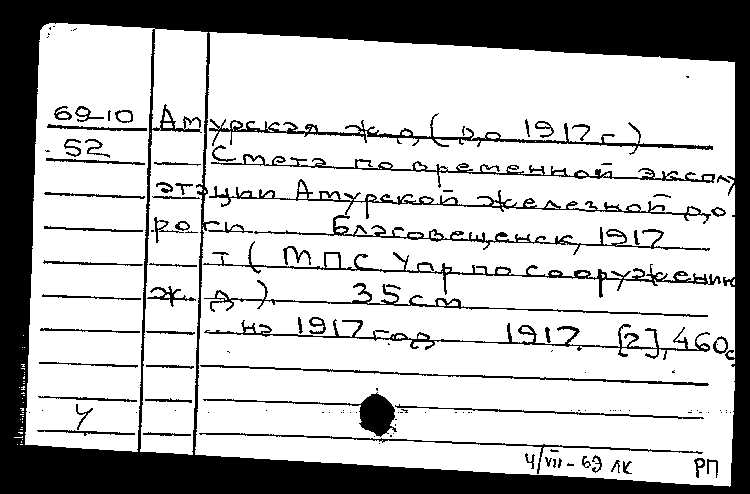 69-10 Амурская ж. д. (до 1917 г.)
52 Смета по временной эксплу
атации Амурской железной до-
роги. Благовещенск, 1917
т (МПС Упр по сооружению
ж. д.). 35 см
на 1917 год 1917. [2], 460 с
У
4/VII-69 ЛК РП